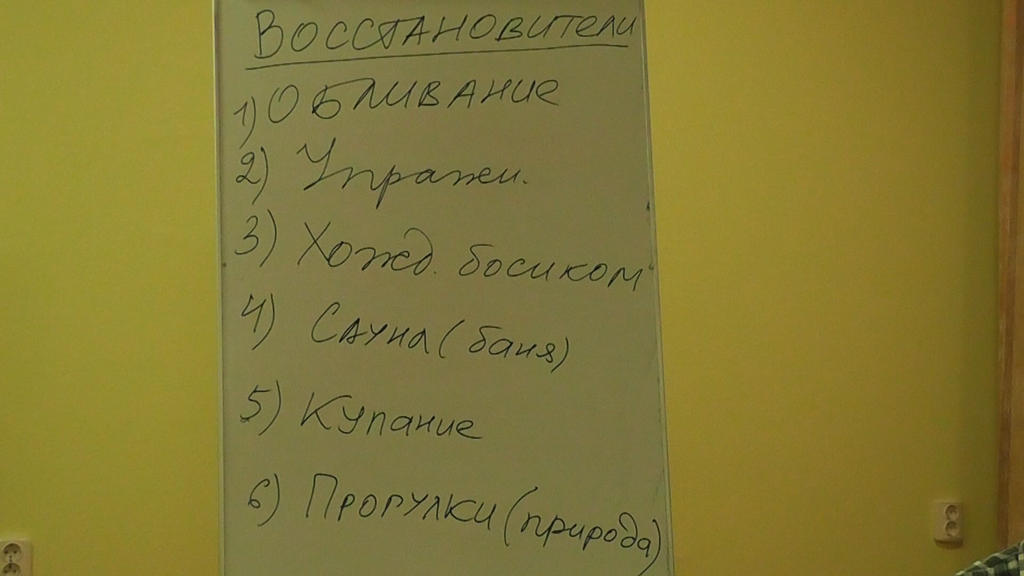 ВОССТАНОВИТЕЛИ
1) ОБЛИВАНИЕ
2) Упражн.
3) Хожд. босиком
4) САУНА (баня)
5) Купание
6) ПРОГУЛКИ (природа)